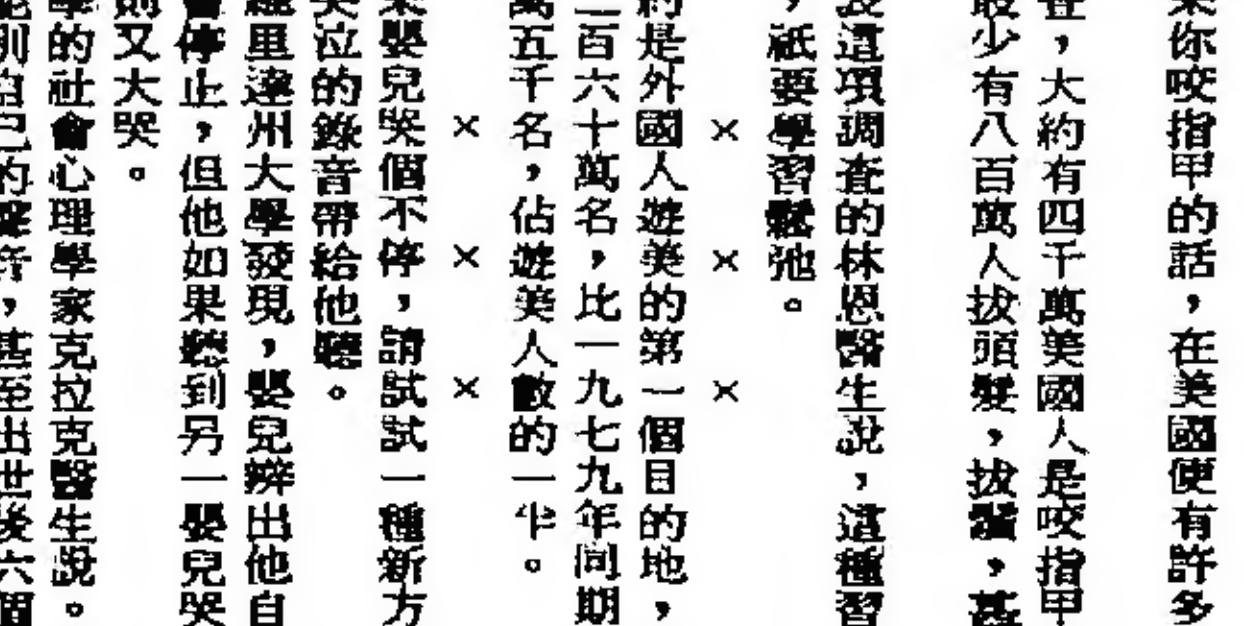 果你咬指甲的話，在美國便有許多
在，大約有四千萬美國人是咬指甲
最少有八百萬人拔頭髮，拔鬚，甚
表這項調査的林恩醫生說，這種習
，祇要學習鬆弛。
× × ×
約是外國人遊美的第一個目的地，
二百六十萬名，比一九七九年同期
萬五千名，佔遊美人數的一半。
× × ×
果嬰兒哭個不停，請試試一種新方
哭泣的錄音帶給他聽。
羅里達州大學發現，嬰兒辨出他自
會停止，但他如果聽到另一嬰兒哭
則又大哭。
學的社會心理學家克拉克醫生說。
別自己的聲音，甚至出世後六個